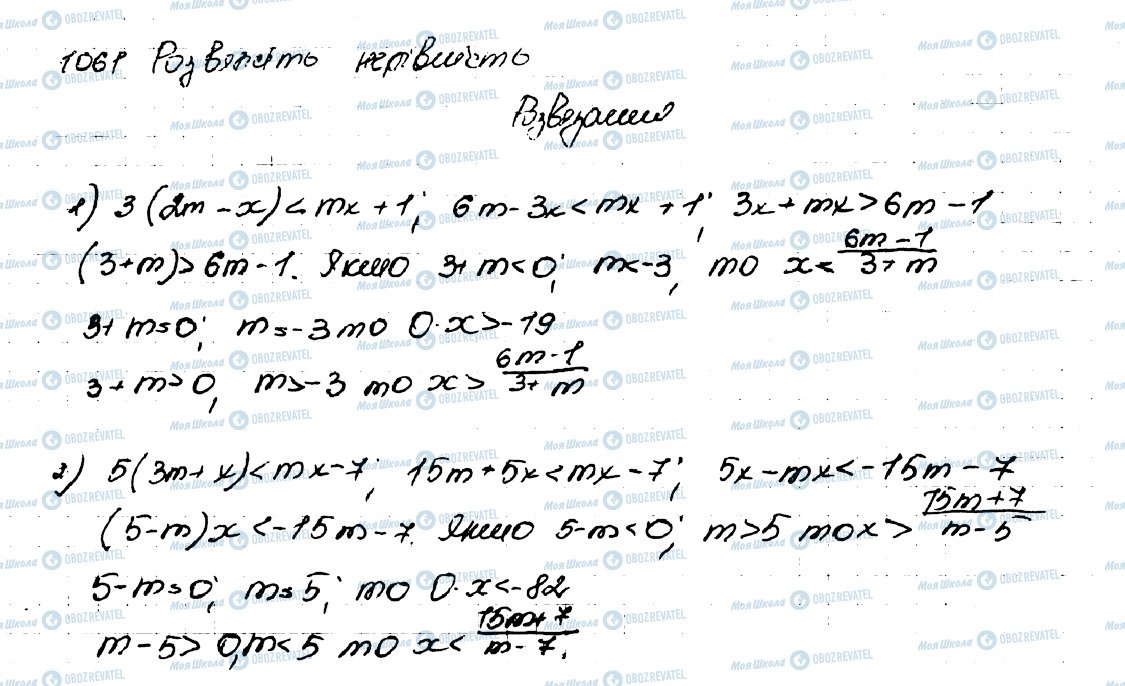 1061 Розвяжіть нерівність
Розвязання
1) 3(2m-x)<mx+1; 6m-3x<mx+1; 3x+mx>6m-1
(3+m)>6m-1. Якщо 3+m<0; m<-3, то x<\frac{6m-1}{3+m}
3+m=0; m=-3 то 0·x>-19
3+m>0, m>-3 то x>\frac{6m-1}{3+m}
2) 5(3m+x)<mx-7; 15m+5x<mx-7; 5x-mx<-15m-7
(5-m)x<-15m-7. Якщо 5-m<0; m>5 то x>\frac{15m+7}{m-5}
5-m=0; m=5; то 0·x<-82
m-5>0, m<5 то x<\frac{15m+7}{m-7}.